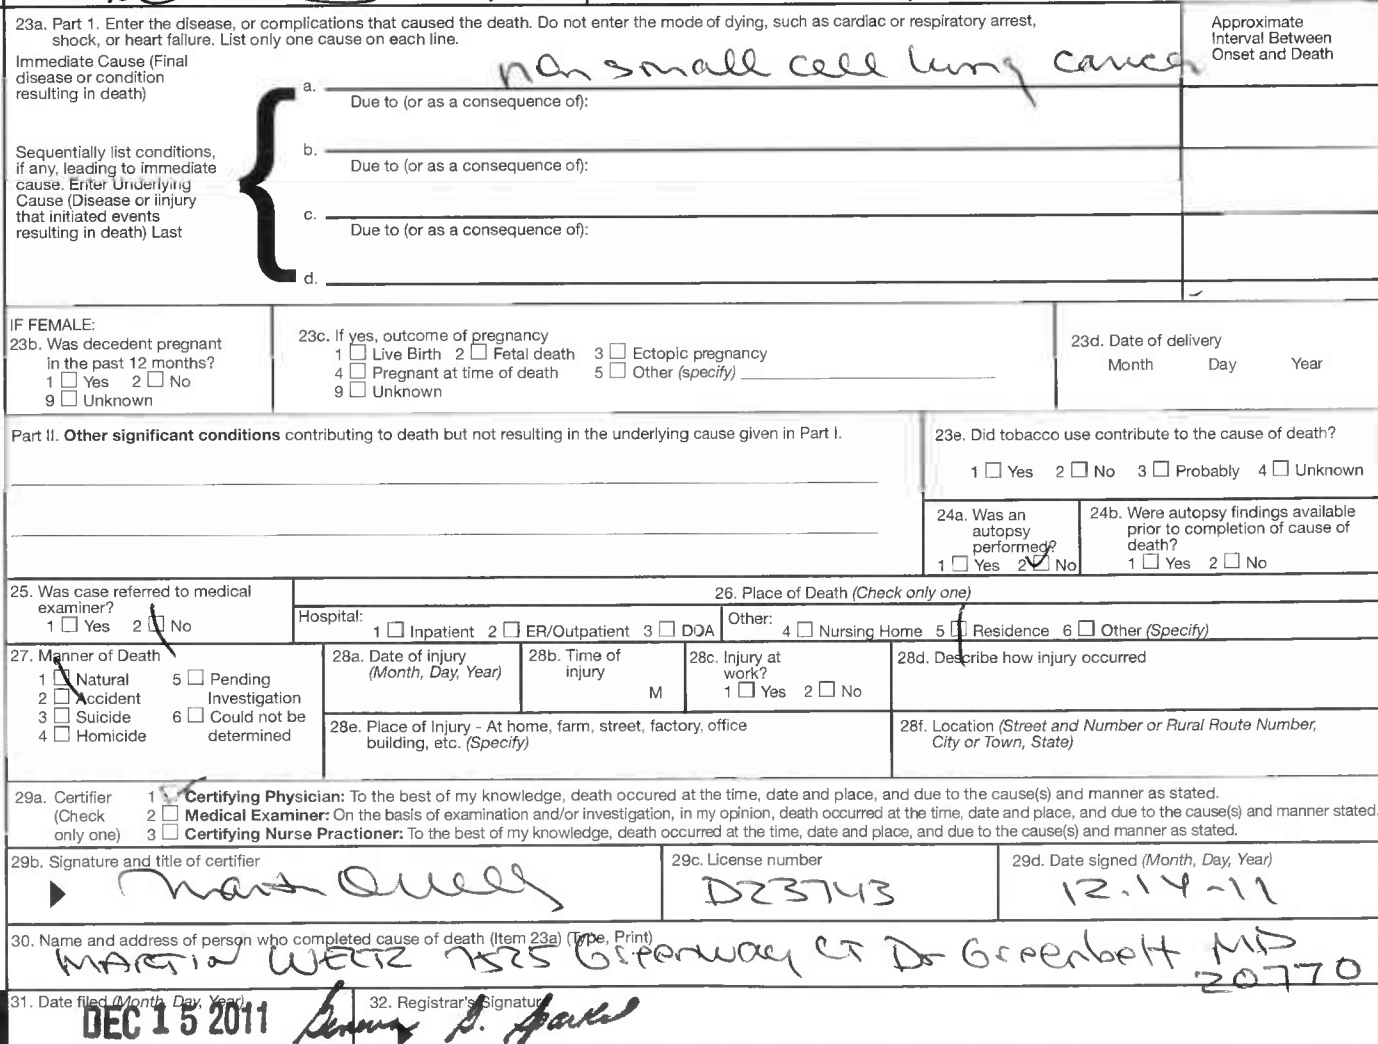 23a. Part 1. Enter the disease, or complications that caused the death. Do not enter the mode of dying, such as cardiac or respiratory arrest,
shock, or heart failure. List only one cause on each line.
Approximate
Interval Between
Onset and Death
Immediate Cause (Final
disease or condition
resulting in death)
a. non small cell lung cancer
Due to (or as a consequence of):
Sequentially list conditions,
if any, leading to immediate
cause. Enter Underlying
Cause (Disease or iinjury
that initiated events
resulting in death) Last
b.
Due to (or as a consequence of):
c.
Due to (or as a consequence of):
d.
IF FEMALE:
23b. Was decedent pregnant
in the past 12 months?
1 ☐ Yes 2 ☐ No
9 ☐ Unknown
23c. If yes, outcome of pregnancy
1 ☐ Live Birth 2 ☐ Fetal death 3 ☐ Ectopic pregnancy
4 ☐ Pregnant at time of death 5 ☐ Other (specify)
9 ☐ Unknown
23d. Date of delivery
Month Day Year
Part II. Other significant conditions contributing to death but not resulting in the underlying cause given in Part I.
23e. Did tobacco use contribute to the cause of death?
1 ☐ Yes 2 ☐ No 3 ☐ Probably 4 ☐ Unknown
24a. Was an
autopsy
performed?
1 ☐ Yes 2 ☑ No
24b. Were autopsy findings available
prior to completion of cause of
death?
1 ☐ Yes 2 ☐ No
25. Was case referred to medical
examiner?
1 ☐ Yes 2 ☑ No
26. Place of Death (Check only one)
Hospital: 1 ☐ Inpatient 2 ☐ ER/Outpatient 3 ☐ DOA
Other: 4 ☐ Nursing Home 5 ☑ Residence 6 ☐ Other (Specify)
27. Manner of Death
1 ☑ Natural
2 ☐ Accident
3 ☐ Suicide
4 ☐ Homicide
5 ☐ Pending
Investigation
6 ☐ Could not be
determined
28a. Date of injury
(Month, Day, Year)
28b. Time of
injury
M
28c. Injury at
work?
1 ☐ Yes 2 ☐ No
28d. Describe how injury occurred
28e. Place of Injury - At home, farm, street, factory, office
building, etc. (Specify)
28f. Location (Street and Number or Rural Route Number,
City or Town, State)
29a. Certifier
(Check
only one)
1 ☑ Certifying Physician: To the best of my knowledge, death occured at the time, date and place, and due to the cause(s) and manner as stated.
2 ☐ Medical Examiner: On the basis of examination and/or investigation, in my opinion, death occurred at the time, date and place, and due to the cause(s) and manner stated.
3 ☐ Certifying Nurse Practioner: To the best of my knowledge, death occurred at the time, date and place, and due to the cause(s) and manner as stated.
29b. Signature and title of certifier
29c. License number
D23743
29d. Date signed (Month, Day, Year)
12.14-11
30. Name and address of person who completed cause of death (Item 23a) (Type, Print)
MARTIN WELTZ 7525 Greenway CT Dr Greenbelt MD
20770
31. Date filed (Month, Day, Year)
DEC 15 2011
32. Registrar's Signature